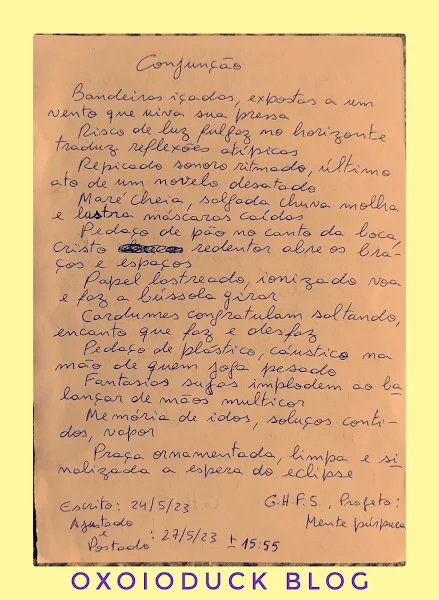 Conjunção
Bandeiras içadas, expostas a um
vento que uiva sua pressa
Risco de luz fulgaz no horizonte
traduz reflexões atípicas
Repicado sonoro ritmado, último
ato de um novelo desatado
Maré cheia, salgada chuva molha
e lustra máscaras caídas
Pedaço de pão no canto da boca,
Cristo redentor abre os bra-
ços e espaços
Papel lastreado, ionizado voa
e faz a bússola girar
Cardumes congratulam saltando,
encanto que faz e desfaz
Pedaço de plástico, cáustico na
mão de quem joga pesado
Fantasias sujas implodem ao ba
lançar de mãos multicor
Memória de idos, soluços conti-
dos, vapor
Praça ornamentada, limpa e si
nalizada a espera do eclipse
Escrito: 24/5/23
G.H.F.S., Projeto:
Mente púrpura
Ajustado
e
Postado : 27/5/23 ± 15:55
OXOIODUCK BLOG